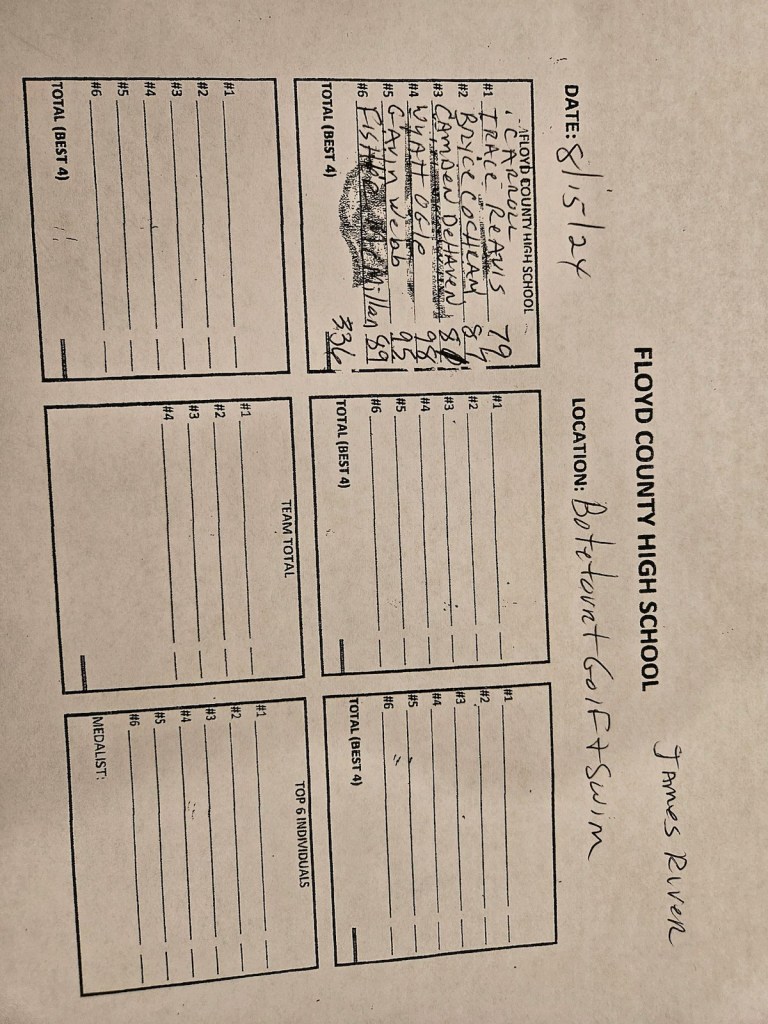 James River
FLOYD COUNTY HIGH SCHOOL
DATE: 8/15/24 LOCATION: Botetourt Golf & Swim
FLOYD COUNTY HIGH SCHOOL
CARROLL
#1 TRACE REAVIS 79
#2 BRYCE COCHRAM 84
#3 CAMDEN DeHAVEN
#4 WYATT OGLE 98
#5 GAVIN Webb 95
#6 McMillan 89
TOTAL (BEST 4) 336
#1
#2
#3
#4
#5
#6
TOTAL (BEST 4)
#1
#2
#3
#4
#5
#6
TOTAL (BEST 4)
#1
#2
#3
#4
#5
#6
TOTAL (BEST 4)
TEAM TOTAL
#1
#2
#3
#4
TOP 6 INDIVIDUALS
#1
#2
#3
#4
#5
#6
MEDALIST: